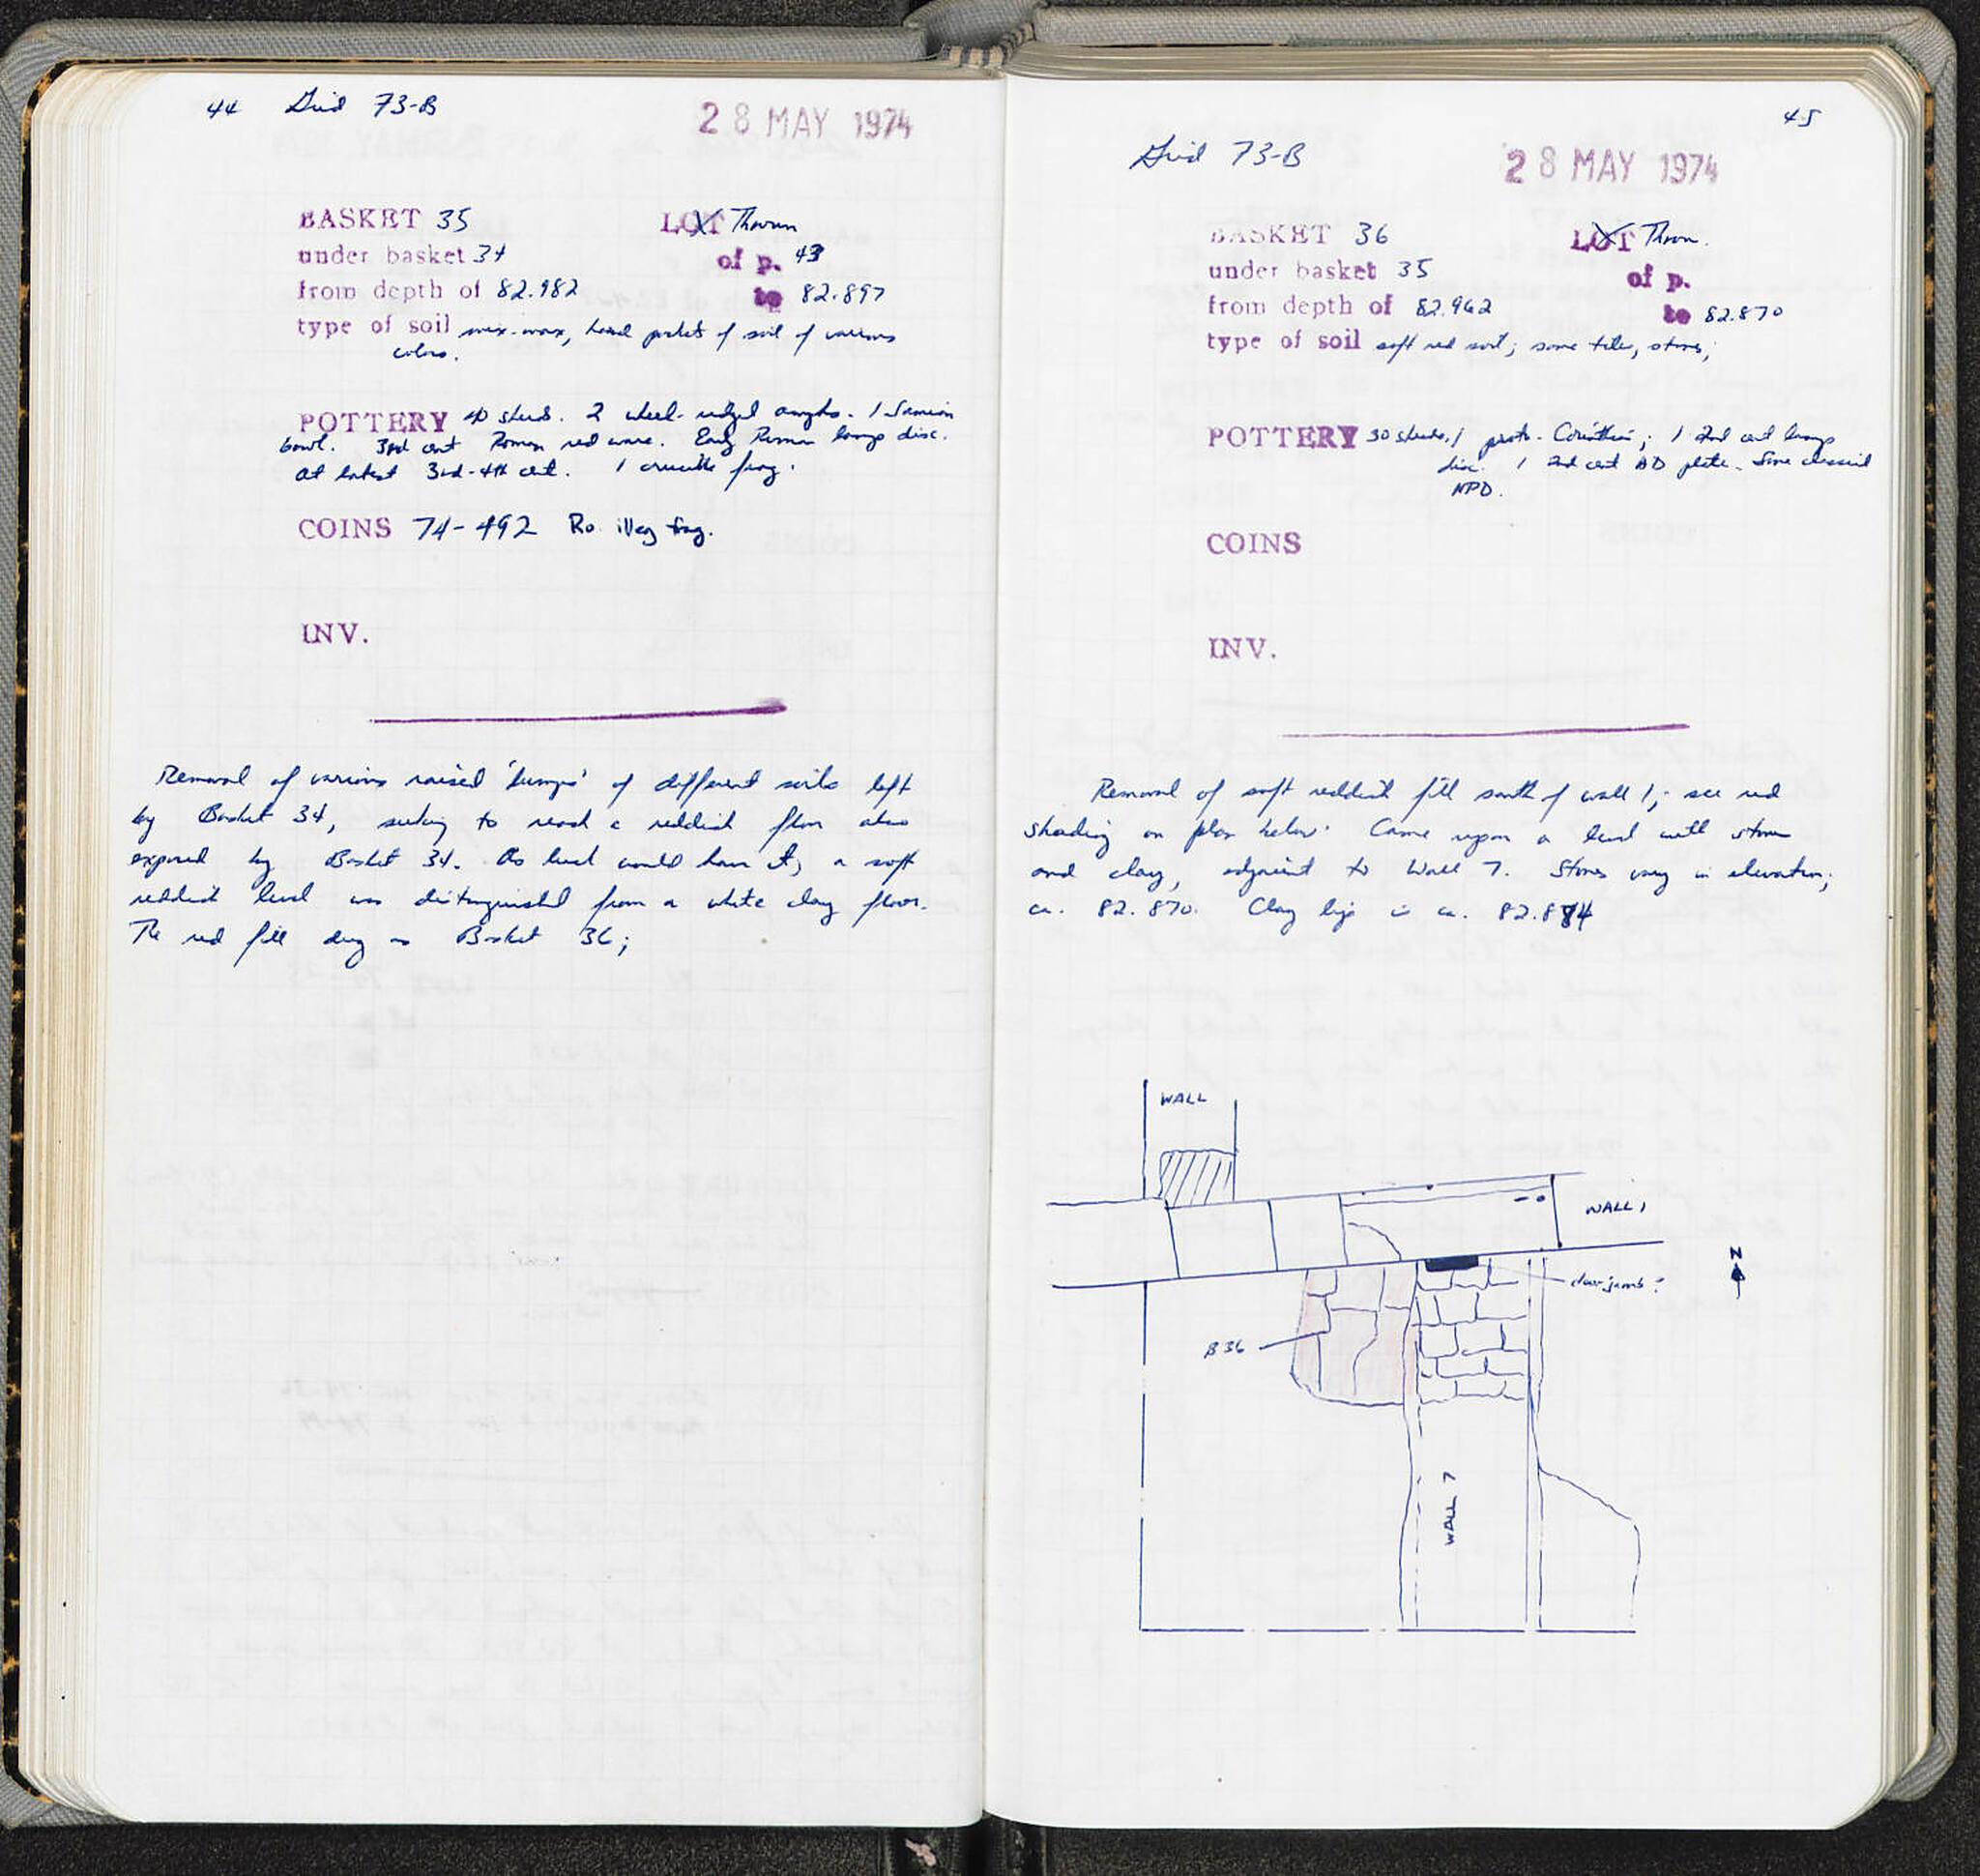 44 Grid 73-B
28 MAY 1974
BASKET 35 LOT Thrown
under basket 34 of p. 43
from depth of 82.982 to 82.897
type of soil mix-max, hard pockets of soil of various
colors.
POTTERY 40 sherds. 2 wheel-ridged amphs. 1 Samian
bowl. 3rd cent Roman red ware. Early Roman lamp disc.
at latest 3rd-4th cent. 1 crucible frag.
COINS 74-492 Ro. illeg frag.
INV.
Removal of various raised 'humps' of different soils left
by Basket 34, seeking to reach a reddish floor also
exposed by Basket 34. As luck would have it, a soft
reddish level was distinguished from a white clay floor.
The red fill dug as Basket 36;
45
Grid 73-B
28 MAY 1974
BASKET 36 LOT Thrown.
under basket 35 of p.
from depth of 82.962 to 82.870
type of soil soft red soil; some tile, stones;
POTTERY 30 sherds, 1 proto-Corinthian; 1 2nd cent lamp
disc. 1 2nd cent AD plate. Some classical
NPD.
COINS
INV.
Removal of soft reddish fill south of wall 1; see red
shading on plan below. Came upon a level with stones
and clay, adjacent to Wall 7. Stones vary in elevation;
ca. 82.870. Clay is ca. 82.884
WALL
WALL 1
N
door jamb?
B36
WALL 7